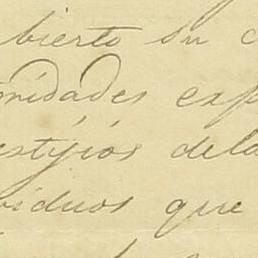 bierto su c
onidades exp
estijios dela
viduos que